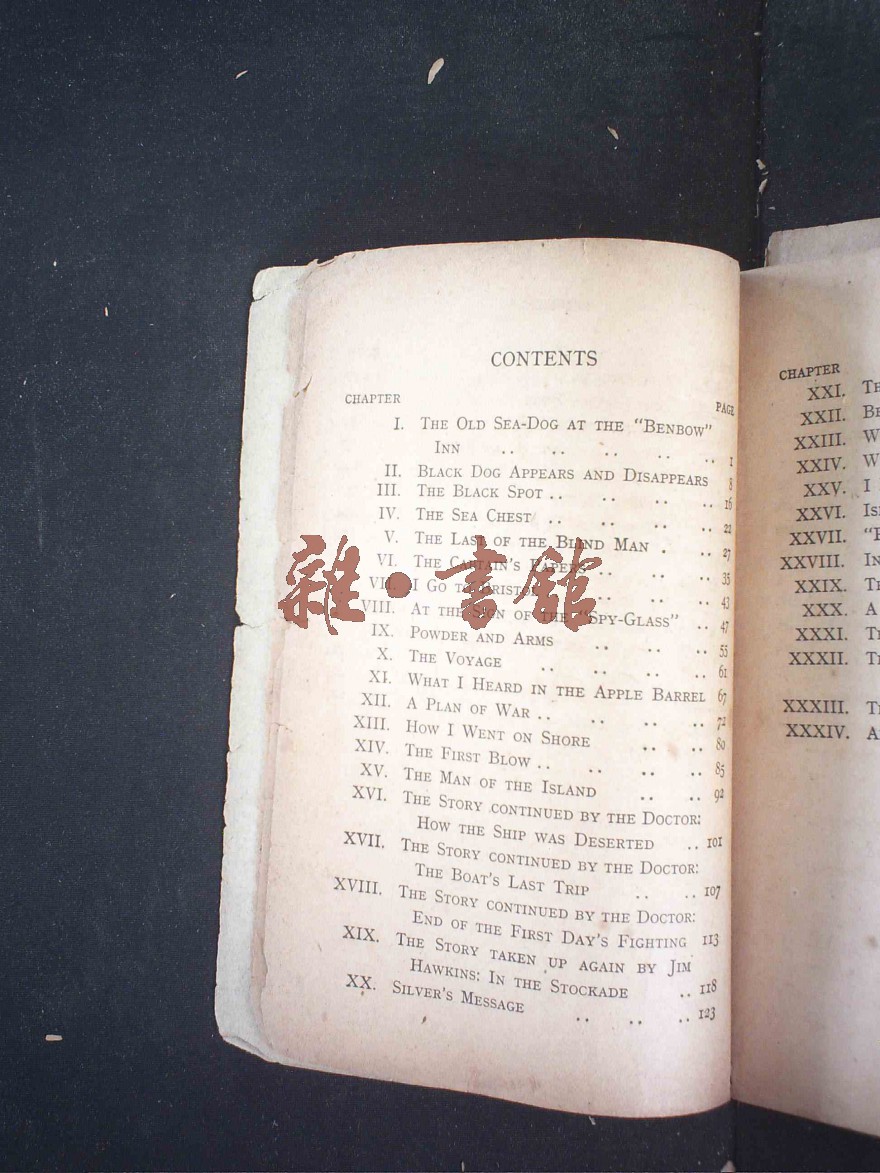 CONTENTS
CHAPTER PAGE
I. THE OLD SEA-DOG AT THE "BENBOW"
INN .. .. .. .. .. 1
II. BLACK DOG APPEARS AND DISAPPEARS 8
III. THE BLACK SPOT .. .. .. .. 16
IV. THE SEA CHEST .. .. .. .. 22
V. THE LAST OF THE BLIND MAN . .. 27
VI. THE CAPTAIN'S PAPERS .. .. .. 35
VII. I GO TO BRISTOL .. .. .. 43
VIII. AT THE SIGN OF THE "SPY-GLASS" .. 47
IX. POWDER AND ARMS .. .. .. 55
X. THE VOYAGE .. .. .. .. 61
XI. WHAT I HEARD IN THE APPLE BARREL 67
XII. A PLAN OF WAR .. .. .. .. 72
XIII. HOW I WENT ON SHORE .. .. 80
XIV. THE FIRST BLOW .. .. .. .. 85
XV. THE MAN OF THE ISLAND .. .. 92
XVI. THE STORY CONTINUED BY THE DOCTOR:
HOW THE SHIP WAS DESERTED .. 101
XVII. THE STORY CONTINUED BY THE DOCTOR:
THE BOAT'S LAST TRIP .. .. 107
XVIII. THE STORY CONTINUED BY THE DOCTOR:
END OF THE FIRST DAY'S FIGHTING 113
XIX. THE STORY TAKEN UP AGAIN BY JIM
HAWKINS: IN THE STOCKADE .. 118
XX. SILVER'S MESSAGE .. .. .. 123
雜·書館
CHAPTER
XXI.
XXII.
XXIII.
XXIV.
XXV. I
XXVI.
XXVII.
XXVIII.
XXIX.
XXX. A
XXXI.
XXXII.
XXXIII.
XXXIV.